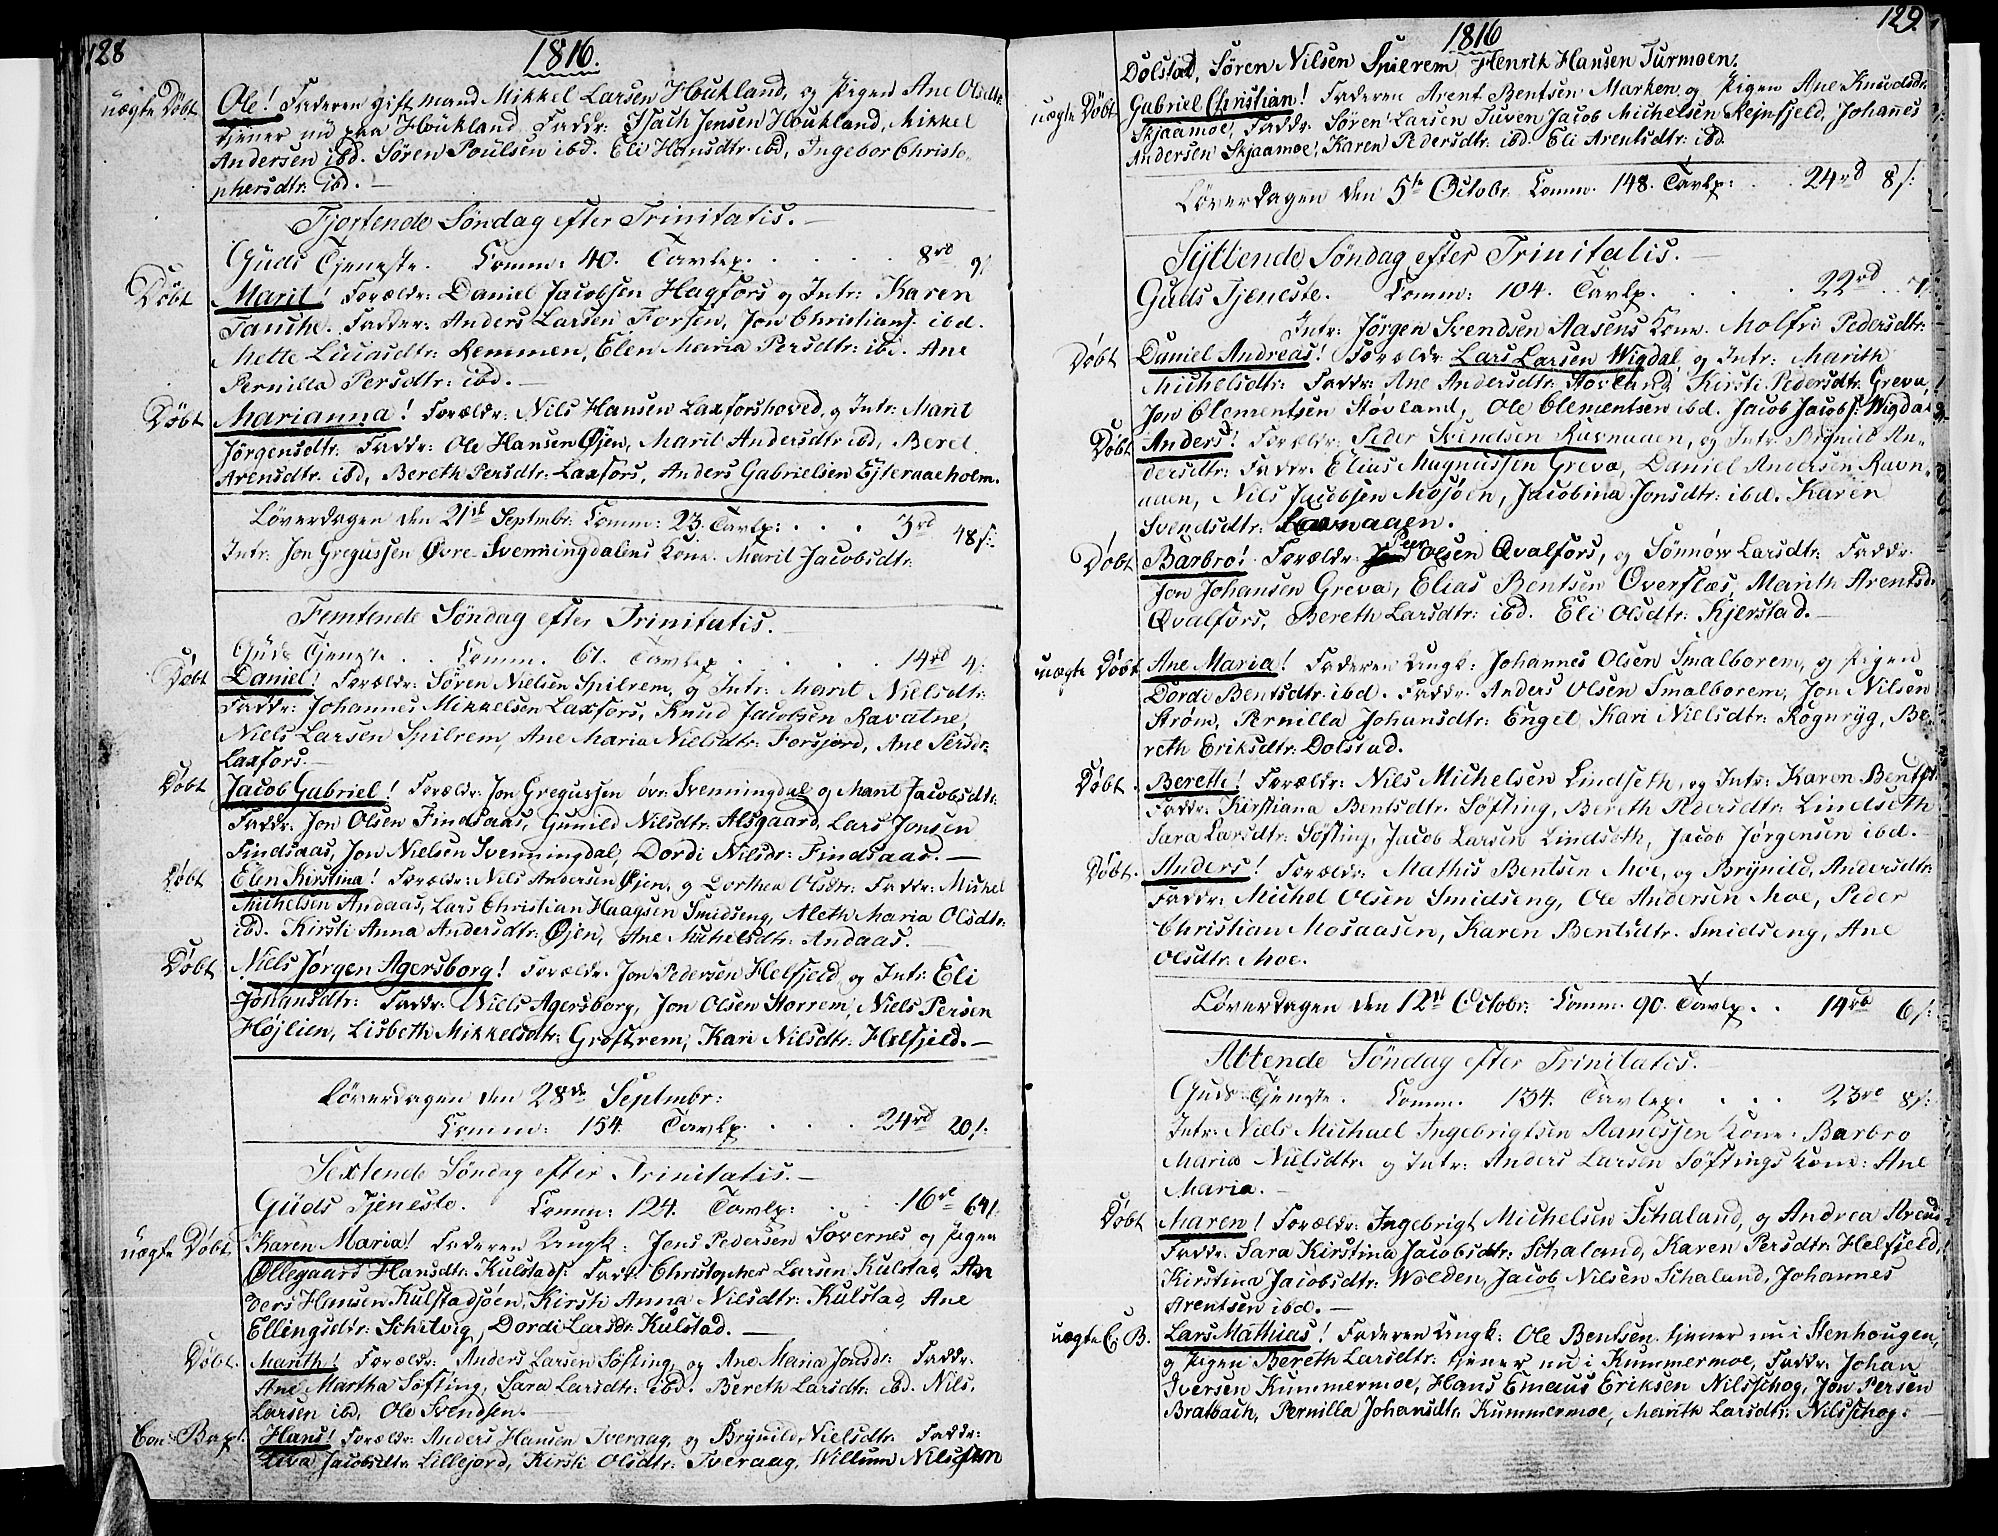 128
1816.
uægte Døbt Ole! Faderen gift mand Mikkel Larsen Houkland, og Pigen Ane Olsdtr:
tjener nu paa Houkland. Faddr: Isach Jensen Houkland, Mikkel
Andersen ibd. Søren Poulsen ibd. Eli Hansdtr: ibd, Ingebor Christo-
phersdtr: ibd.
Fjortende Søndag efter Trinitatis.
Guds Tjeneste. Comm: 40. Tavlp. 8rd 9/
Døbt Marit! Forældr: Daniel Jacobsen Hagfors og Intr: Karen
Tausche. Fadder: Anders Larsen Forsen, Jon Christians. ibd.
Mette Lucasdtr: Remmen, Elen Maria Persdtr: ibd. Ane
Pernilla Persdtr: ibd.
Døbt Marianna! Forældr: Nils Hansen Laxforshoved, og Intr: Marit
Jørgensdtr: Faddr: Ole Hansen Øjen, Marit Andersdtr ibd, Beret
Arensdtr: ibd, Bereth Persdtr: Laxfors, Anders Gabrielsen Ejteraaeholm.
Løverdagen den 21de Septembr: Comm: 23. Tavlp: 3rd 48/:
Intr: Jon Gregussen Øvre Svenningdalens Kone Marit Jacobsdtr:
Femtende Søndag efter Trinitatis.
Guds Tjeneste Comm. 67. Tavlep 14rd 4/:
Døbt Daniel! Forældr: Søren Nielsen Spilrem, og Intr: Marit Nielsdtr:
Faddr: Johannes Mikkelsen Laxfors, Knud Jacobsen Ravatne,
Niels Larsen Spilrem, Ane Maria Nielsdtr: Forsjord, Ane Persdr:
Laxfors.
Døbt Jacob Gabriel! Forældr: Jon Gregussen øvr: Svenningdal og Marit Jacobsdtr:
Faddr: Jon Olsen Findsaas, Gunild Nilsdtr: Alsgaard, Lars Jonsen
Findsaas, Jon Nielsen Svenningdal, Dordi Nilsdr: Findsaas.
Døbt Elen Kirstina! Forældr: Nils Andersen Øjen, og Dorthea Olsdtr: Faddr: Mickel
Michelsen Andaas, Lars Christian Haagsen Smidseng, Aleth Maria Olsdtr:
ibd. Kirsti Anna Andersdtr: Øjen, Ane Michelsdtr: Andaas.
Døbt Niels Jørgen Agersborg! Forældr: Jon Pedersen Helfjeld og Intr: Eli
Johansdtr: Faddr: Niels Agersborg, Jon Olsen Storrem, Niels Persen
Højlien, Lisbeth Mikkelsdtr: Groftrem, Kari Nilsdtr: Helfjeld.
Løverdagen den 28de Septembr:
Comm: 154. Tavlp. 24rd 20/:
Sextende Søndag efter Trinitatis.
Guds Tjeneste. Comm: 124. Tavlp: 16rd 64/
uægte Døbt. Karen Maria! Faderen Ungk: Jens Pedersen Sovernes og Pigen
Ollegaard Hansdtr: Kulstads: Fadr: Christopher Larsen Kulstad, An
ders Hansen Kulstadsjøen, Kirsti Anna Nilsdtr: Kulstad, Ane
Ellingsdtr: Schitvig, Dordi Larsdr: Kulstad.
Døbt. Marith! Forældr: Anders Larsen Søfting, og Ane Maria Jonsdr: Faddr:
Ane Martha Søfting, Sara Larsdtr: ibd. Bereth Larsdtr: ibd. Nils.
Larsen ibd, Ole Svendsen.
Con: Bapt. Hans! Forældr: Anders Hansen Tveraag, og Brynild Nielsdtr: Faddr:
Jacobsdtr: Lillejord, Kirsti Olsdtr: Tveraag, Willum Nilssen
129.
1816
Dolstad, Søren Nilsen Spierem, Henrik Hansen Turmoen.
uægte Døbt Gabriel Christian! Faderen Arent Bentsen Marken, og Pigen Ane Knudsdr.
Skjaamoe, Faddr. Søren Larsen Tuven Jacob Michelsen Rejnfjeld, Johannes
Andersen Skjaamoe, Karen Pedersdtr: ibd Eli Arentsdtr: ibd.
Løverdagen den 5te Octobr. Comm. 148. Tavlp: 24rd 8/:
Syttende Søndag efter Trinitatis.
Guds Tjeneste. Comm: 104. Tavlp. 22rd
Intr: Jørgen Svendsen Aasens Kone Molfri Pedersdtr:
Døbt Daniel Andreas! Forældr: Lars Larsen Wigdal, og Intr: Marith
Michelsdtr: Faddr: Ane Andersdtr: Støvland, Kirsti Pedersdtr: Greva,
Jon Clementsen Støvland, Ole Clementsen ibd. Jacob Jacobs: Wigdal
Døbt Anders! Forældr: Peder Svendsen Ravnaaen, og Intr Brynild An-
dersdtr: Faddr: Elias Magnussen Greva, Daniel Andersen Ravn-
aaen, Nils Jacobsen Mosjøen, Jacobina Jonsdtr: ibd. Karen
Svendsdtr: Ravnaaen.
Døbt Barbro! Forældr: Peer Olsen Qvalfors, og Sønnøw Larsdtr: Faddr:
Jon Johansen Greva, Elias Bentsen Overflaes, Marith Arentsdr
Qvalfors, Bereth Larsdtr: ibd. Eli Olsdtr: Kjerstad.
uægte Døbt Ane Maria! Faderen Ungk: Johannes Olsen Smalborem, og Pigen
Dordi Bentsdtr: ibd. Faddr: Anders Olsen Smalborem, Jon Nilsen
Strøm, Pernilla Johansdtr: Enget, Kari Nielsdtr: Rognryg, Be-
reth Eriksdtr: Dolstad.
Døbt. Bereth! Forældr: Nils Michelsen Lindseth, og Intr: Karen Bentsd.
Faddr: Kirstiana Bentsdtr: Søfting, Bereth Pedersdtr: Lindseth
Sara Larsdtr: Søfting, Jacob Larsen Lindseth, Jacob Jørgensen ibd.
Døbt. Anders! Forældr: Mathis Bentsen Moe, og Brynild Andersdtr:
Faddr: Michel Olsen Smidseng, Ole Andersen Moe, Peder
Christian Mosaasen, Karen Bentsdtr. Smidseng, Ane
Olsdtr: Moe.
Løverdagen den 12te Octobr: Comm. 90. Tavlp. 14rd 6/:
Attende Søndag efter Trinitatis.
Guds Tjeneste. Comm. 134. Tavlep. 23rd 8/:
Intr: Niels Michael Ingebrigtsen Kone. Barbro
Maria Nielsdtr. og Intr: Anders Larsen Søftings Kone: Ane
Maria.
Døbt Maren! Forældr: Ingebrigt Michelsen Schaland, og Andrea
Faddr: Sara Kirstina Jacobsdtr: Schaland, Karen Persdtr: Helfjeld,
Kirstina Jacobsdtr: Wolden, Jacob Nilsen Schaland, Johannes
Arentsen ibd.
uægte C. B. Lars Mathias! Faderen Ungk: Ole Bentsen tjener nu i Stenhougen,
og Pigen Bereth Larsdtr: tjener nu i Kummermoe, Faddr: Johan
Iversen Kummermoe, Hans Emaus Eriksen Nilsschog, Jon Persen
Bratbach, Pernilla Johansdtr: Kummermoe, Marith Larsdtr: Nilsschog: